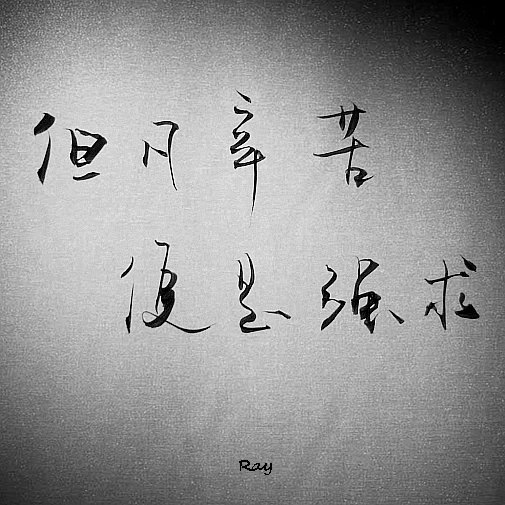 但凡辛苦
便是强求
Ray